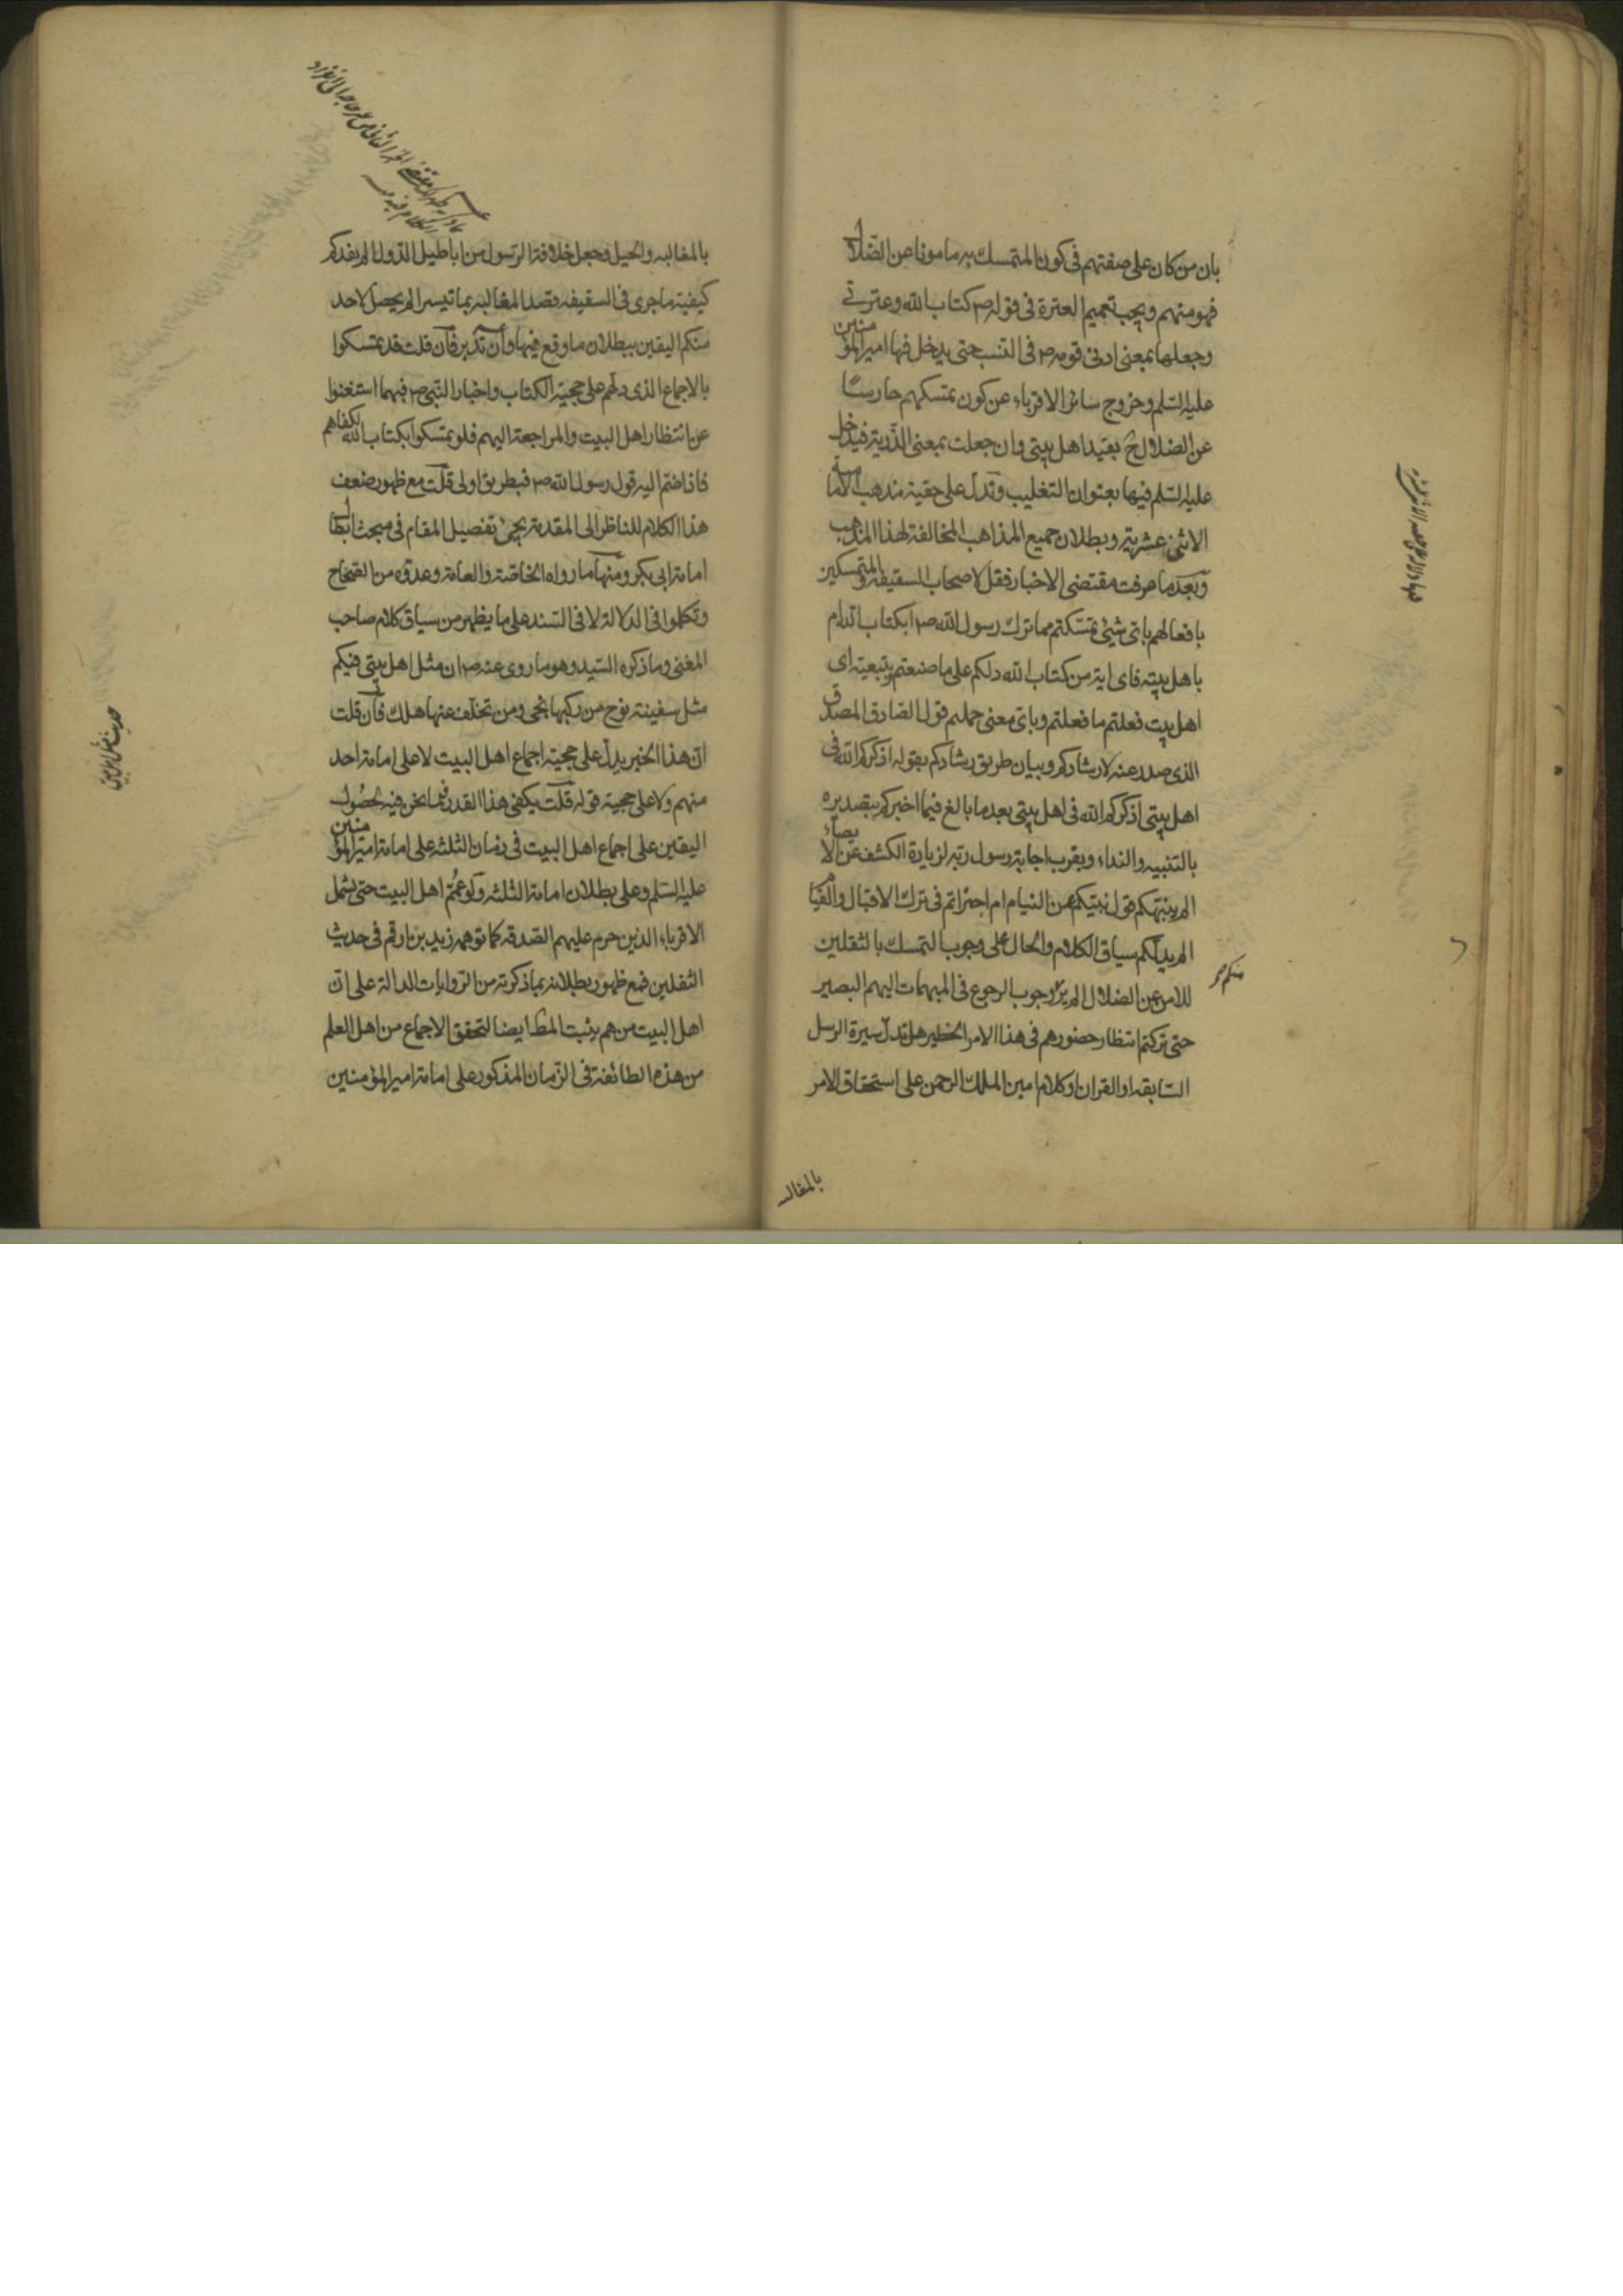 بان من كان على صفتهم فى كون المتمسك به مامونا عن الضلال
فهو منهم ويجب تعميم العترة فى قوله ص كتاب الله وعترتى
وجعلها بمعنى ادنى قومه ص فى النسب حتى يدخل فيها امير المؤمنين
عليه السلم وخروج سائر الاقرباء عن كون تمسكهم حارسا
عن الضلال ح بقيد اهل بيتى وان جعلت بمعنى الذرية فيدخل
عليه السلم فيها بعنوان التغليب وتدل على حقية مذهب الامامية
الاثنى عشرية وبطلان جميع المذاهب المخالفة لهذا المذهب
وبعد ما عرفت مقتضى الاخبار فقل لاصحاب السقيفة والمتمسكين
بافعالهم باى شيئ تمسكتم مما ترك رسول الله ص ابكتاب الله ام
باهل بيته فاى اية من كتاب الله دلكم على ما صنعتم وبتبعية اى
اهل بيت فعلتم ما فعلتم وباى معنى حملتم قول الصادق المصدق
الذى صدر عنه لارشادكم وبيان طريق رشادكم بقوله اذكركم الله فى
اهل بيتى اذكركم الله فى اهل بيتى بعد ما بالغ فيما اخبركم بتصديره
بالتنبيه والنداء وبقرب اجابة رسول ربه لزيادة الكشف عن الابصار
الم ينبهكم قول نبيكم عن النيام ام اجتراتم فى ترك الاقبال والقيام
الم يدلكم سياق الكلام والحال على وجوب التمسك بالثقلين
للامن عن الضلال الم ير وجوب الرجوع فى المبهمات اليهم البصير
منكم
حتى تركتم انتظار حضورهم فى هذا الامر الخطير هل تدل سيرة الرسل
السابقة او القران او كلام امين الملك الرحمن على استحقاق الامر
بالمغالبه
بالمغالبه والحيل وجعل خلافة الرسول من اباطيل الدول الم يفدكم
كيفية ما جرى فى السقيفه وقصد المغالبة بما تيسر الم يحصل لاحد
منكم اليقين ببطلان ما وقع فيها وان تدبر فان قلت قد تمسكوا
بالاجماع الذى دلهم على حجية الكتاب واخبار النبى ص فبهما استغنوا
عن انتظار اهل البيت والمراجعة اليهم فلو تمسكوا بكتاب الله لكفاهم
فاذا ضم اليه قول رسول الله ص فبطريق اولى قلت مع ظهور ضعف
هذا الكلام للناظر الى المقدمة يجئ تفصيل المقام فى مبحث ابطال
امامة ابى بكر ومنها ما رواه الخاصة والعامة وعدوه من الصحاح
وتكلموا فى الدلالة لا فى السند على ما يظهر من سياق كلام صاحب
المغنى وما ذكره السيد وهو ما روى عنه ص ان مثل اهل بيتى فيكم
مثل سفينة نوح من ركبها نجى ومن تخلف عنها هلك فان قلت
ان هذا الخبر يدل على حجية اجماع اهل البيت لا على امامة احد
منهم ولا على حجية قوله قلت يكفى هذا القدر فيما نحن فيه لحصول
اليقين على اجماع اهل البيت فى زمان الثلثة على امامة امير المؤمنين
عليه السلم وعلى بطلان امامة الثلثه ولو عمم اهل البيت حتى يشمل
الاقرباء الذين حرم عليهم الصدقه كما توهمه زيد بن ارقم فى حديث
الثقلين فمع ظهور بطلانه بما ذكرته من الروايات الدالة على ان
اهل البيت من هم يثبت المط ايضا لتحقق الاجماع من اهل العلم
من هذه الطائفة فى الزمان المذكور على امامة امير المؤمنين